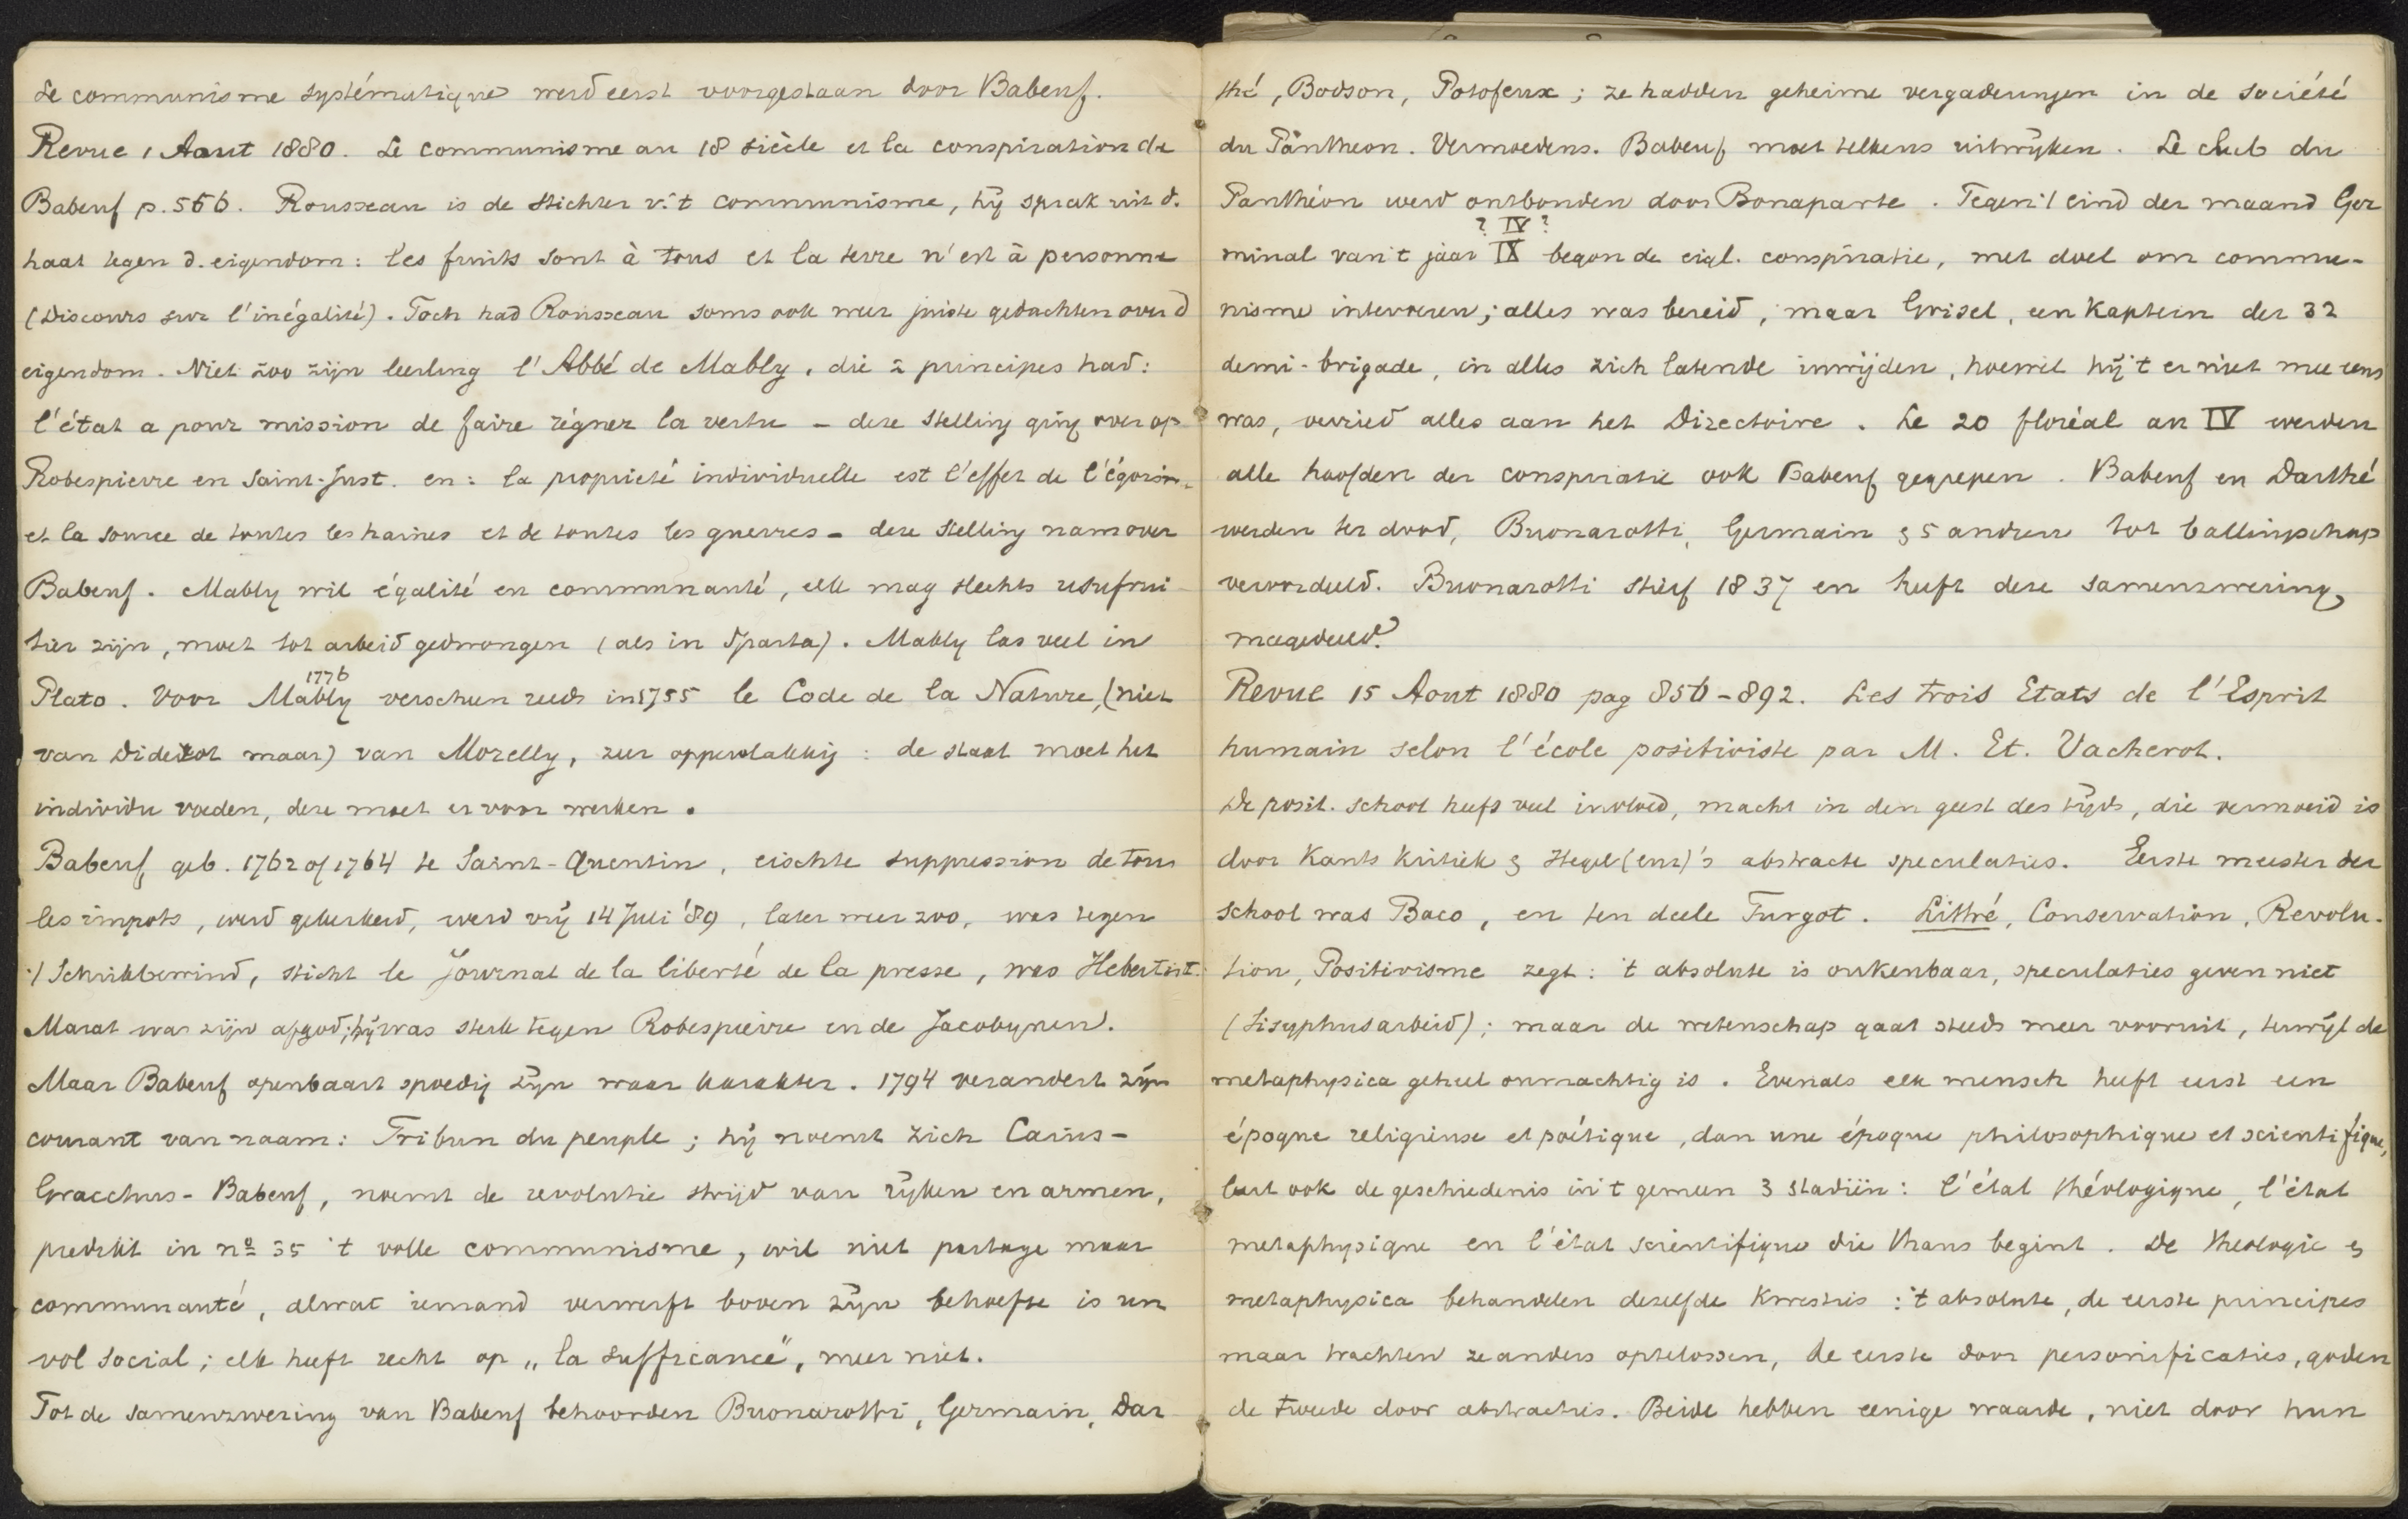 Le communisme systématique werd eerst voorgestaan door Babeuf.
Revue 1 Aout 1880. Le communisme au 18 siècle et la conspiration de
Babeuf p. 566. Rousseau is de stichter v. 't communisme, hij sprak uit d.
haat tegen d. eigendom: les fruits sont à tous et la terre n'est à personne
(Discours sur l'inégalité). Toch had Rousseau soms ook weer juiste gedachten over d
eigendom. Niet zoo zijn leerling l'Abbé de Mably, die 2 principes had:
l'état a pour mission de faire régner la vertu - deze stelling ging over op
Robespierre en Saint-Just. en: la proprieté individuelle est l'effet de l'égoism.
et la source de toutes les haines et de toutes les guerres - deze stelling nam over
Babeuf. Mably wil égalité en communauté, elk mag slechts usufrui-
tier zijn, moet tot arbeid gedwongen (als in Sparta). Mably las veel in
1776
Plato. Voor Mably verscheen reeds in 1755 le Code de la Nature, (niet
van Diderot maar) van Morelly, zeer oppervlakkig: de staat moet het
individu voeden, deze moet er voor werken.
Babeuf, geb. 1762 of 1764 te Saint-Quentin, eischte suppression de tous
les impots, werd gekerkerd, werd vrij 14 Juli '89, later weer zoo, was tegen
't Schrikbewind, sticht le Journal de la liberté de la presse, was Hebertist.
Marat was zijn afgod; hij was sterk tegen Robespierre en de Jacobynen.
Maar Babeuf openbaart spoedig zijn waar karakter. 1794 verandert zijn
courant van naam: Tribun du peuple; hij noemt zich Caius-
Gracchus-Babeuf, noemt de revolutie strijd van rijken en armen,
predikt in nº 35 't volle communisme, wil niet partage maar
communauté, alwat iemand verwerft boven zijn behoefte is un
vol social; elk heeft recht op „la suffisance", meer niet.
Tot de samenzwering van Babeuf behoorden Buonarotti, Germain, Dar-
thé, Bodson, Potofeux; ze hadden geheime vergaderingen in de société
du Pantheon. Vermoedens. Babeuf moet telkens uitwijken. Le club du
Panthéon werd ontbonden door Bonaparte. Tegen 't eind der maand Ger
? IV ?
minal van 't jaar IX begon de eigl. conspiratie, met doel om commu-
nisme intevoeren; alles was bereid, maar Grisel, een kaptein der 32
demi-brigade, in alles zich latende inwijden, hoewel hij 't er niet mee eens
was, verried alles aan het Directoire. Le 20 floréal an IV werden
alle hoofden der conspiratie ook Babeuf gegrepen. Babeuf en Darthé
werden ter dood, Buonarotti, Germain & 5 andere tot ballingschap
veroordeeld. Buonarotti stierf 1837 en heeft deze samenzwering
meegedeeld.
Revue 15 Aout 1880 pag 856-892. Les trois Etats de l'Esprit
humain selon l'école positiviste par M. Et. Vacherot.
De posit. school heeft veel invloed, macht in den geest des tijds, die vermoeid is
door Kants kritiek & Hegel (enz)'s abstracte speculaties. Eerste meester der
school was Baco, en ten deele Turgot. Littré, Conservation, Revolu-
tion, Positivisme zegt: 't absolute is onkenbaar, speculaties geven niet
(Sisyphusarbeid); maar de wetenschap gaat steeds meer vooruit, terwijl de
metaphysica geheel onmachtig is. Evenals elk mensch heeft eerst een
époque religieuse et poétique, dan une époque philosophique et scientifique,
leert ook de geschiedenis in 't gemeen 3 stadiën: l'état théologique, l'état
metaphysique en l'état scientifique die thans begint. De theologie &
metaphysica behandelen dezelfde kwesties: 't absolute, de eerste principes
maar trachten ze anders optelossen, de eerste door personificaties, goden
de tweede door abstracties. Beide hebben eenige waarde, niet door hun